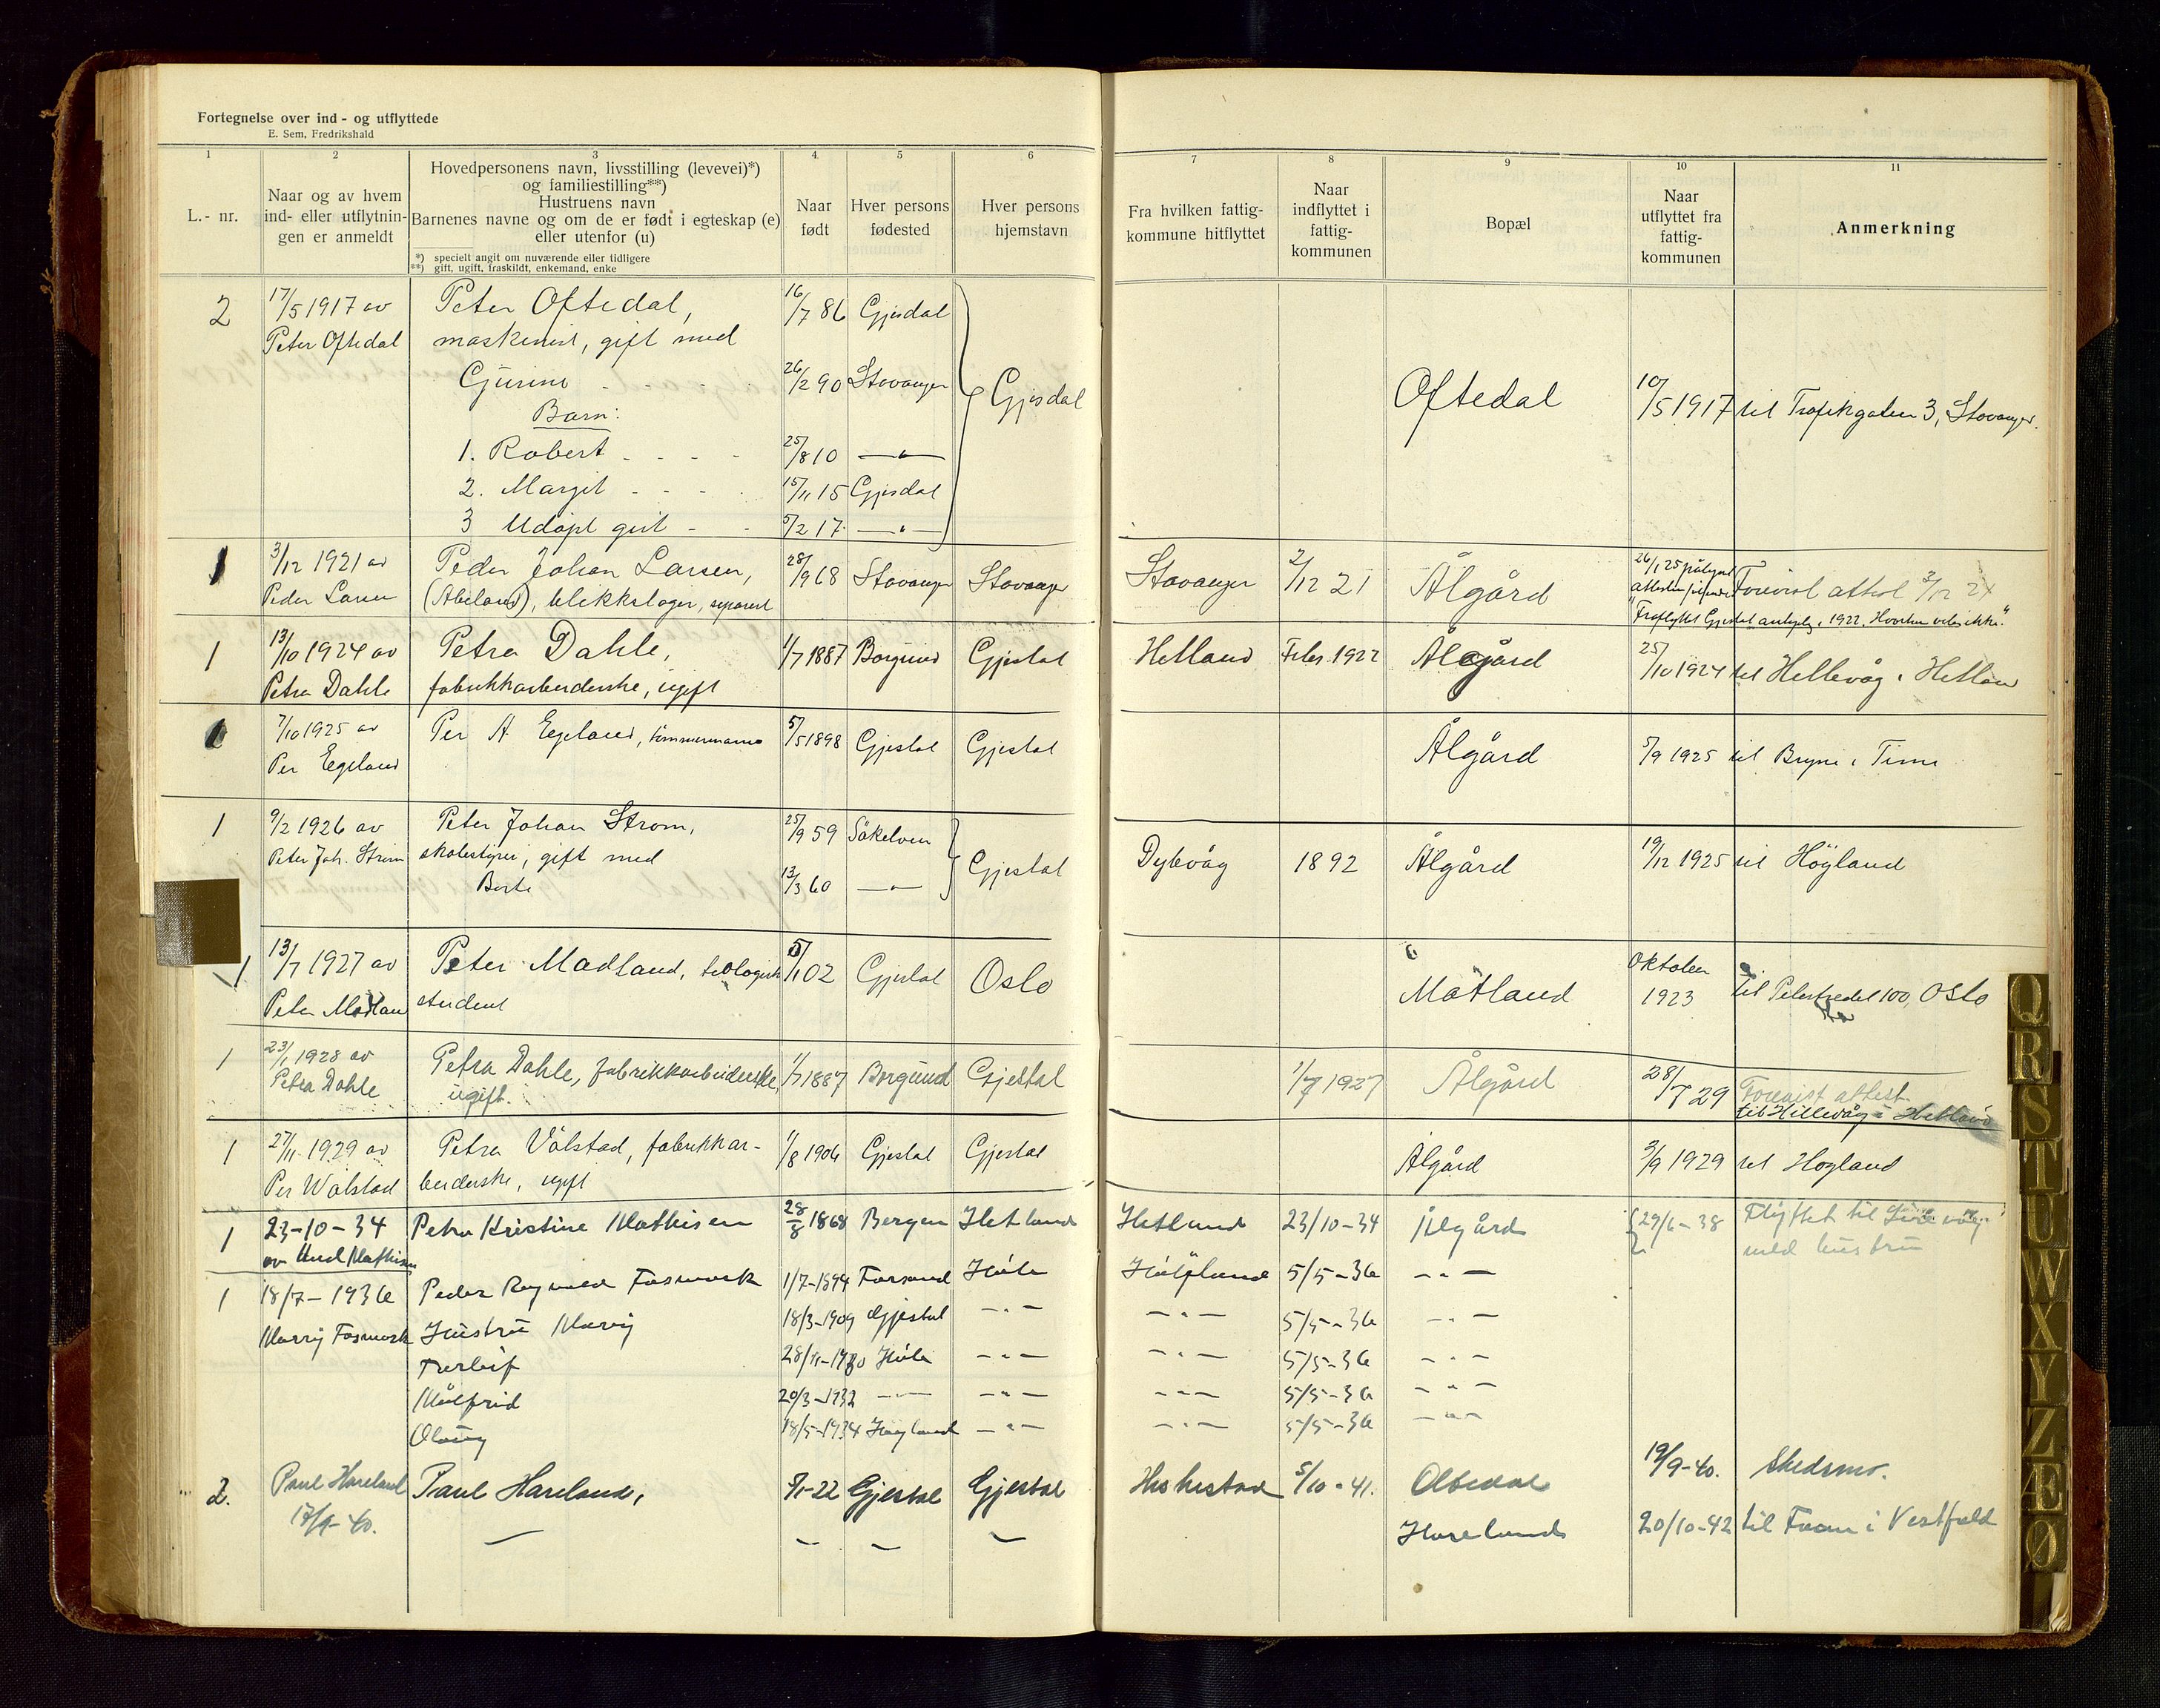 Fortegnelse over ind - og utflyttede
E. Sem, Fredrikshald
1 2 3 4 5 6 7 8 9 10 11
L.- nr.
Naar og av hvem
ind- eller utflytnin-
gen er anmeldt
Hovedpersonens navn, livsstilling (levevei)*)
og familiestilling**)
Hustruens navn
Barnenes navne og om de er født i egteskap (e)
eller utenfor (u)
*) specielt angit om nuværende eller tidligere
**) gift, ugift, fraskildt, enkemand, enke
Naar
født
Hver persons
fødested
Hver persons
hjemstavn
Fra hvilken fattig-
kommune hitflyttet
Naar
indflyttet i
fattig-
kommunen
Bopæl
Naar
utflyttet fra
fattig-
kommunen
Anmerkning
2 17/5 1917 av Peter Oftedal, 16/7 86 Gjesdal
Peter Oftedal maskinist, gift med
26/2 90 Stavanger Gjesdal Oftedal 10/5 1917 til Trafikgaten 3, Stavanger.
Barn:
1. Robert - - - - 25/8 10 — " —
2. Margit - - - 15/11 15 Gjesdal
3 Udøpt gut - - 5/2 17 — " —
1 3/12 1921 av Peder Johan Larsen, 28/9 68 Stavanger Stavanger Stavanger 2/12 21 Ålgård 26/1 25
Peder Larsen (Abeland), blekkslager, separert Forevist attest
1 13/10 1924 av Petra Dahle, 1/7 1887 Borgund Gjestal Hetland Febr. 1922 Ålgård 25/10 1924 til Hillevåg i Hetland
Petra Dahle fabrikkarbeiderske, ugift
1 7/10 1925 av Per A Egeland, tømmermann 5/5 1898 Gjestal Gjestal Ålgård 5/9 1925 til Bryne i Time
Per Egeland
1 9/2 1926 av Peter Johan Strøm, 25/9 59 Søkelven Gjestal Dybvåg 1892 Ålgård 19/12 1925 til Høyland
Peter Joh. Strøm skolestyrer, gift med
Berte 13/3 60 — " —
1 13/7 1927 av Peter Madland, teologisk 5/1 02 Gjestal Oslo Måtland Oktober 1923 til 100, Oslo
Peter Madland student
1 23/1 1928 av Petra Dahle, fabrikkarbeiderske, 1/7 1887 Borgund Gjestal 1/7 1927 Ålgård 28/7 29 Forevist attest
Petra Dahle ugift. til Hillevåg i Hetland
1 27/11 1929 av Petra Vålstad, fabrikkar- 1/8 1906 Gjestal Gjestal Ålgård 3/9 1929 til Høgland
Per Wålstad beiderske, ugift
1 23-10-34 Petra Kristine Mathisen 28/8 1868 Bergen Hetland Hetland 23/10-34 Ålgård 29/6-38 Flyttet til
av Mathisen med hustru
1 18/7-1936 Peder Fosmark 1/7-1894 Forsand Høle Høyland 5/5-36 — " —
Fosmark Hustru 18/3-1909 Gjestal — " — — " — 5/5-36 — " —
Torleif 28/11-1930 Høle — " — — " — 5/5-36 — " —
Målfrid 20/3-1932 — " — — " — — " — 5/5-36 — " —
Olaug 18/5-1934 Høyland — " — — " — 5/5-36 — " —
2. Paul Hareland Paul Hareland, Gjestal Gjestal Heskestad 5/10-41. Oltedal 19/9-40. Skedsmo.
17/9-40. — — — — Hareland 20/10-42 til i Vestfold
Q
R
S
T
U
W
X
Y
Z
Æ
Ø